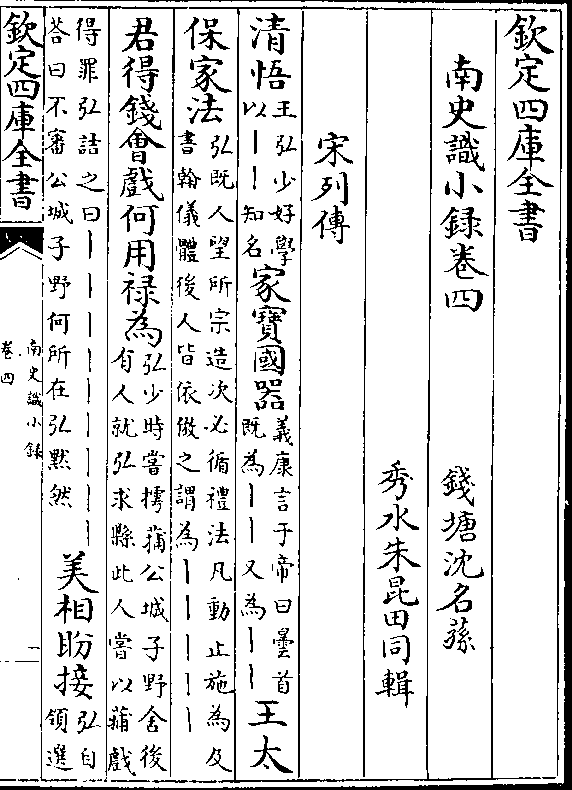 欽定四庫全書
南史識小録卷四
錢塘沈名蓀
秀水朱昆田同輯
宋列傳
清悟王弘少好學以丨丨知名家寶國器義康言于帝曰曇首既為丨丨又為丨丨王太
保家法弘既人望所宗造次必循禮法凡動止施為及書翰儀體後人皆依倣之謂為丨丨丨丨丨
君得錢會戲何用禄為弘少時嘗摴蒲公城子野舍後有人就弘求縣此人嘗以蒱戲
得罪弘詰之曰丨丨丨丨丨丨丨丨丨荅曰不審公城子野何所在弘黙然美相盼接弘自領選
欽定四庫全書
南史識小録
卷四
一